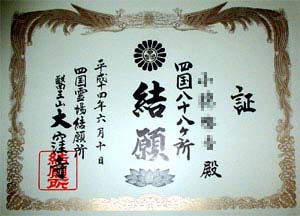 証
四国八十八ヶ所
殿
結願
平成十四年六月十日
四国霊場結願所
醫王山大窪寺
結願所